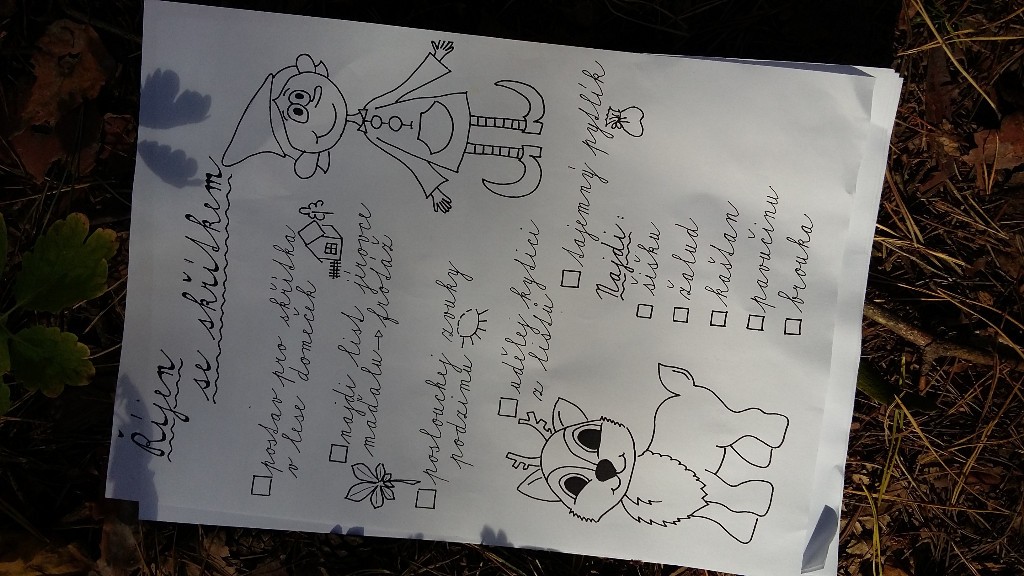 Říjen
se skřítkem
□ postav pro skřítka
v lese domeček
□ najdi list jírovce
maďalu → frotáž
□ poslouchej zvuky
podzimu
□ udělej kytici
z listů
□ tajemný pytlík
Najdi:
□ šišku
□ žalud
□ kaštan
□ pavučinu
□ brouka